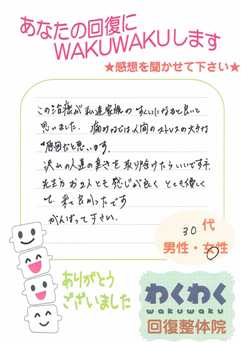 あなたの回復に
WAKUWAKUします
★感想を聞かせて下さい★
この治療が私達家族の救いになると良いと
思いました。痛みは人間のストレスの大きな
原因だと思います。
沢山の人達の辛さを取り除けたらいいですネ
先生方が2人とも感じが良く とても優しく
て、来て良かったです
がんばって下さい。
30代
男性・女性
ありがとう
ございました
わくわく
wakuwaku
回復整体院